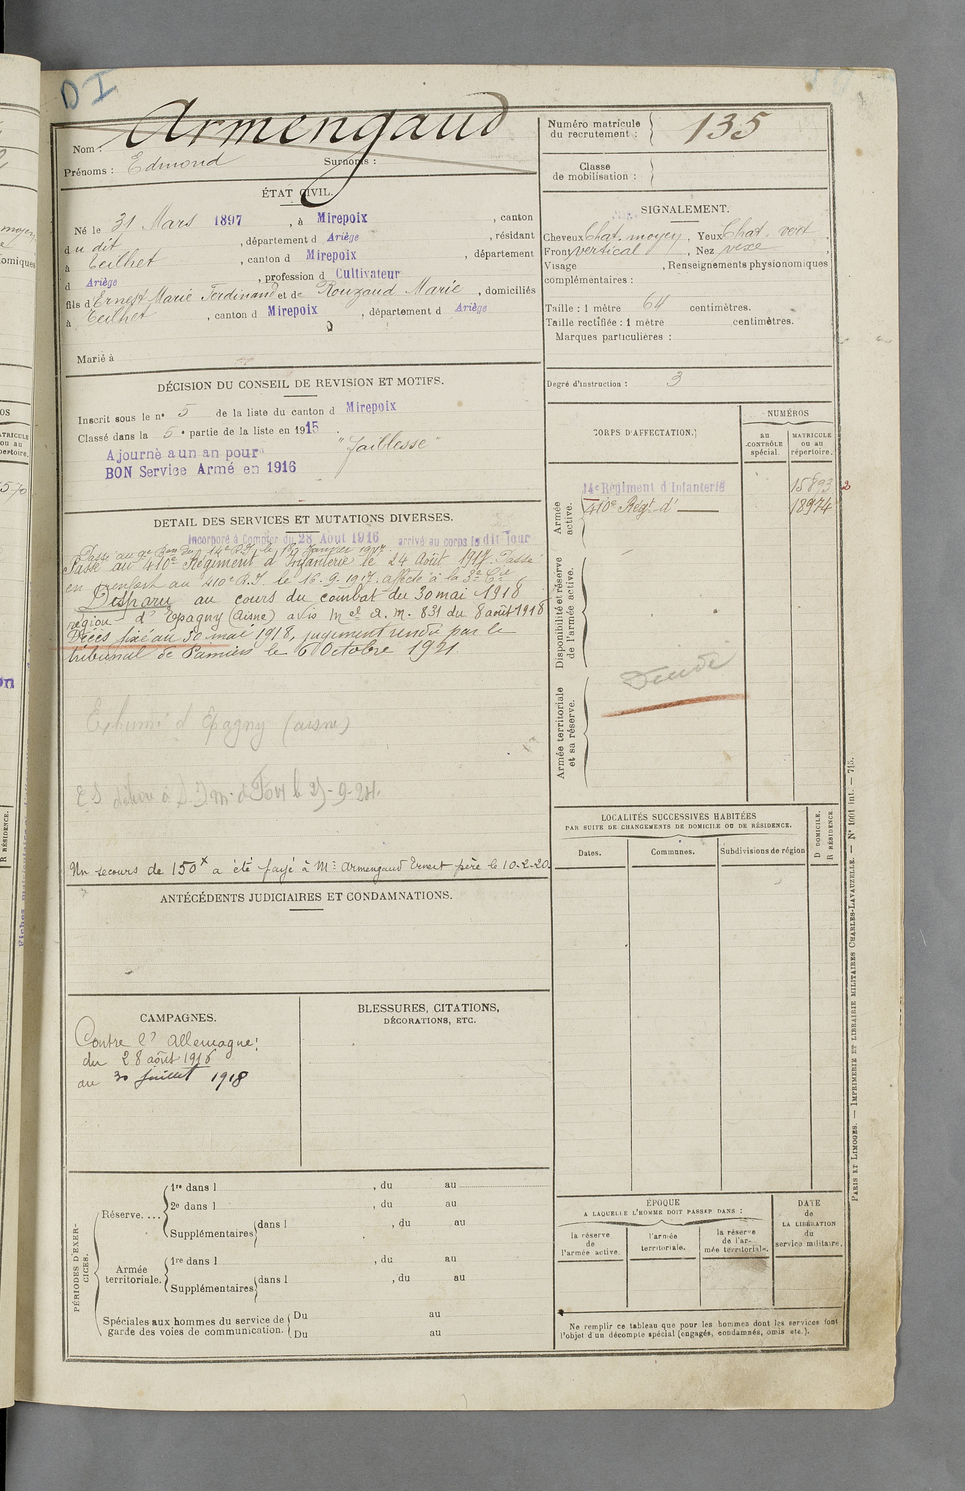 DI
Nom : Armengaud
Prénoms : Edmond Surnoms :
Numéro matricule du recrutement : 135
Classe de mobilisation :
ÉTAT CIVIL.
Né le 31 Mars 1897, à Mirepoix, canton
du dit, département d Ariège, résidant
à Teilhet, canton d Mirepoix, département
d Ariège, profession d Cultivateur
fils d Ernest Marie Ferdinand et de Rouzaud Marie, domiciliés
à Teilhet, canton d Mirepoix, département d Ariège
Marié à
SIGNALEMENT.
Cheveux Chat. moyen, Yeux Chat. vert,
Front vertical, Nez vexe,
Visage , Renseignements physionomiques
complémentaires :
Taille : 1 mètre 64 centimètres.
Taille rectifiée : 1 mètre centimètres.
Marques particulières :
Degré d'instruction : 3
DÉCISION DU CONSEIL DE REVISION ET MOTIFS.
Inscrit sous le n° 5 de la liste du canton d Mirepoix
Classé dans la 5e partie de la liste en 1915.
Ajourné a un an pour "faiblesse"
BON Service Armé en 1916
CORPS D'AFFECTATION.
NUMÉROS
AU CONTRÔLE spécial.
MATRICULE ou au répertoire.
Armée active.
14e Régiment d'Infanterie 15893
410e Régt d° 18974
2
Disponibilité et réserve de l'armée active.
Armée territoriale et sa réserve.
DETAIL DES SERVICES ET MUTATIONS DIVERSES.
Incorporé à Compter du 28 Août 1916 arrivé au corps le dit jour
Passé au 9e Bon du 14e R.I. le Janvier 1917.
Passé au 410e Régiment d'Infanterie le 24 Août 1917. Passé
en renfort au 410e R.I. le 16-9-1917. affecté à la 3e Cie
Disparu au cours du combat du 30 mai 1918
région d'Epagny (Aisne) avis mel A. M. 831 du 8 août 1918
Décès fixé au 30 mai 1918, jugement rendu par le
tribunal de Pamiers le 6 Octobre 1921
Exhumé d'Epagny (aisne)
Un secours de 150 a été payé à Mr Armengaud Ernest père le 10-2-20.
LOCALITÉS SUCCESSIVES HABITÉES
PAR SUITE DE CHANGEMENTS DE DOMICILE OU DE RÉSIDENCE.
Dates. Communes. Subdivisions de région
D DOMICILE.
R RÉSIDENCE
ANTÉCÉDENTS JUDICIAIRES ET CONDAMNATIONS.
CAMPAGNES.
Contre l'Allemagne:
du 28 août 1916
au 30 Juillet 1918
BLESSURES, CITATIONS,
DÉCORATIONS, ETC.
PÉRIODES D'EXERCICES.
Réserve....
1re dans l , du au
2e dans l , du au
Supplémentaires dans l , du au
Armée territoriale.
1re dans l , du au
Supplémentaires dans l , du au
Spéciales aux hommes du service de
garde des voies de communication.
Du au
Du au
ÉPOQUE
A LAQUELLE L'HOMME DOIT PASSER DANS :
la réserve de l'armée active.
l'armée territoriale.
la réserve de l'armée territoriale.
DATE de LA LIBÉRATION du service militaire.
Ne remplir ce tableau que pour les hommes dont les services font
l'objet d'un décompte spécial (engagés, condamnés, omis etc.).
PARIS ET LIMOGES. — IMPRIMERIE ET LIBRAIRIE MILITAIRES CHARLES-LAVAUZELLE. — N° 1001 Int. — 715.